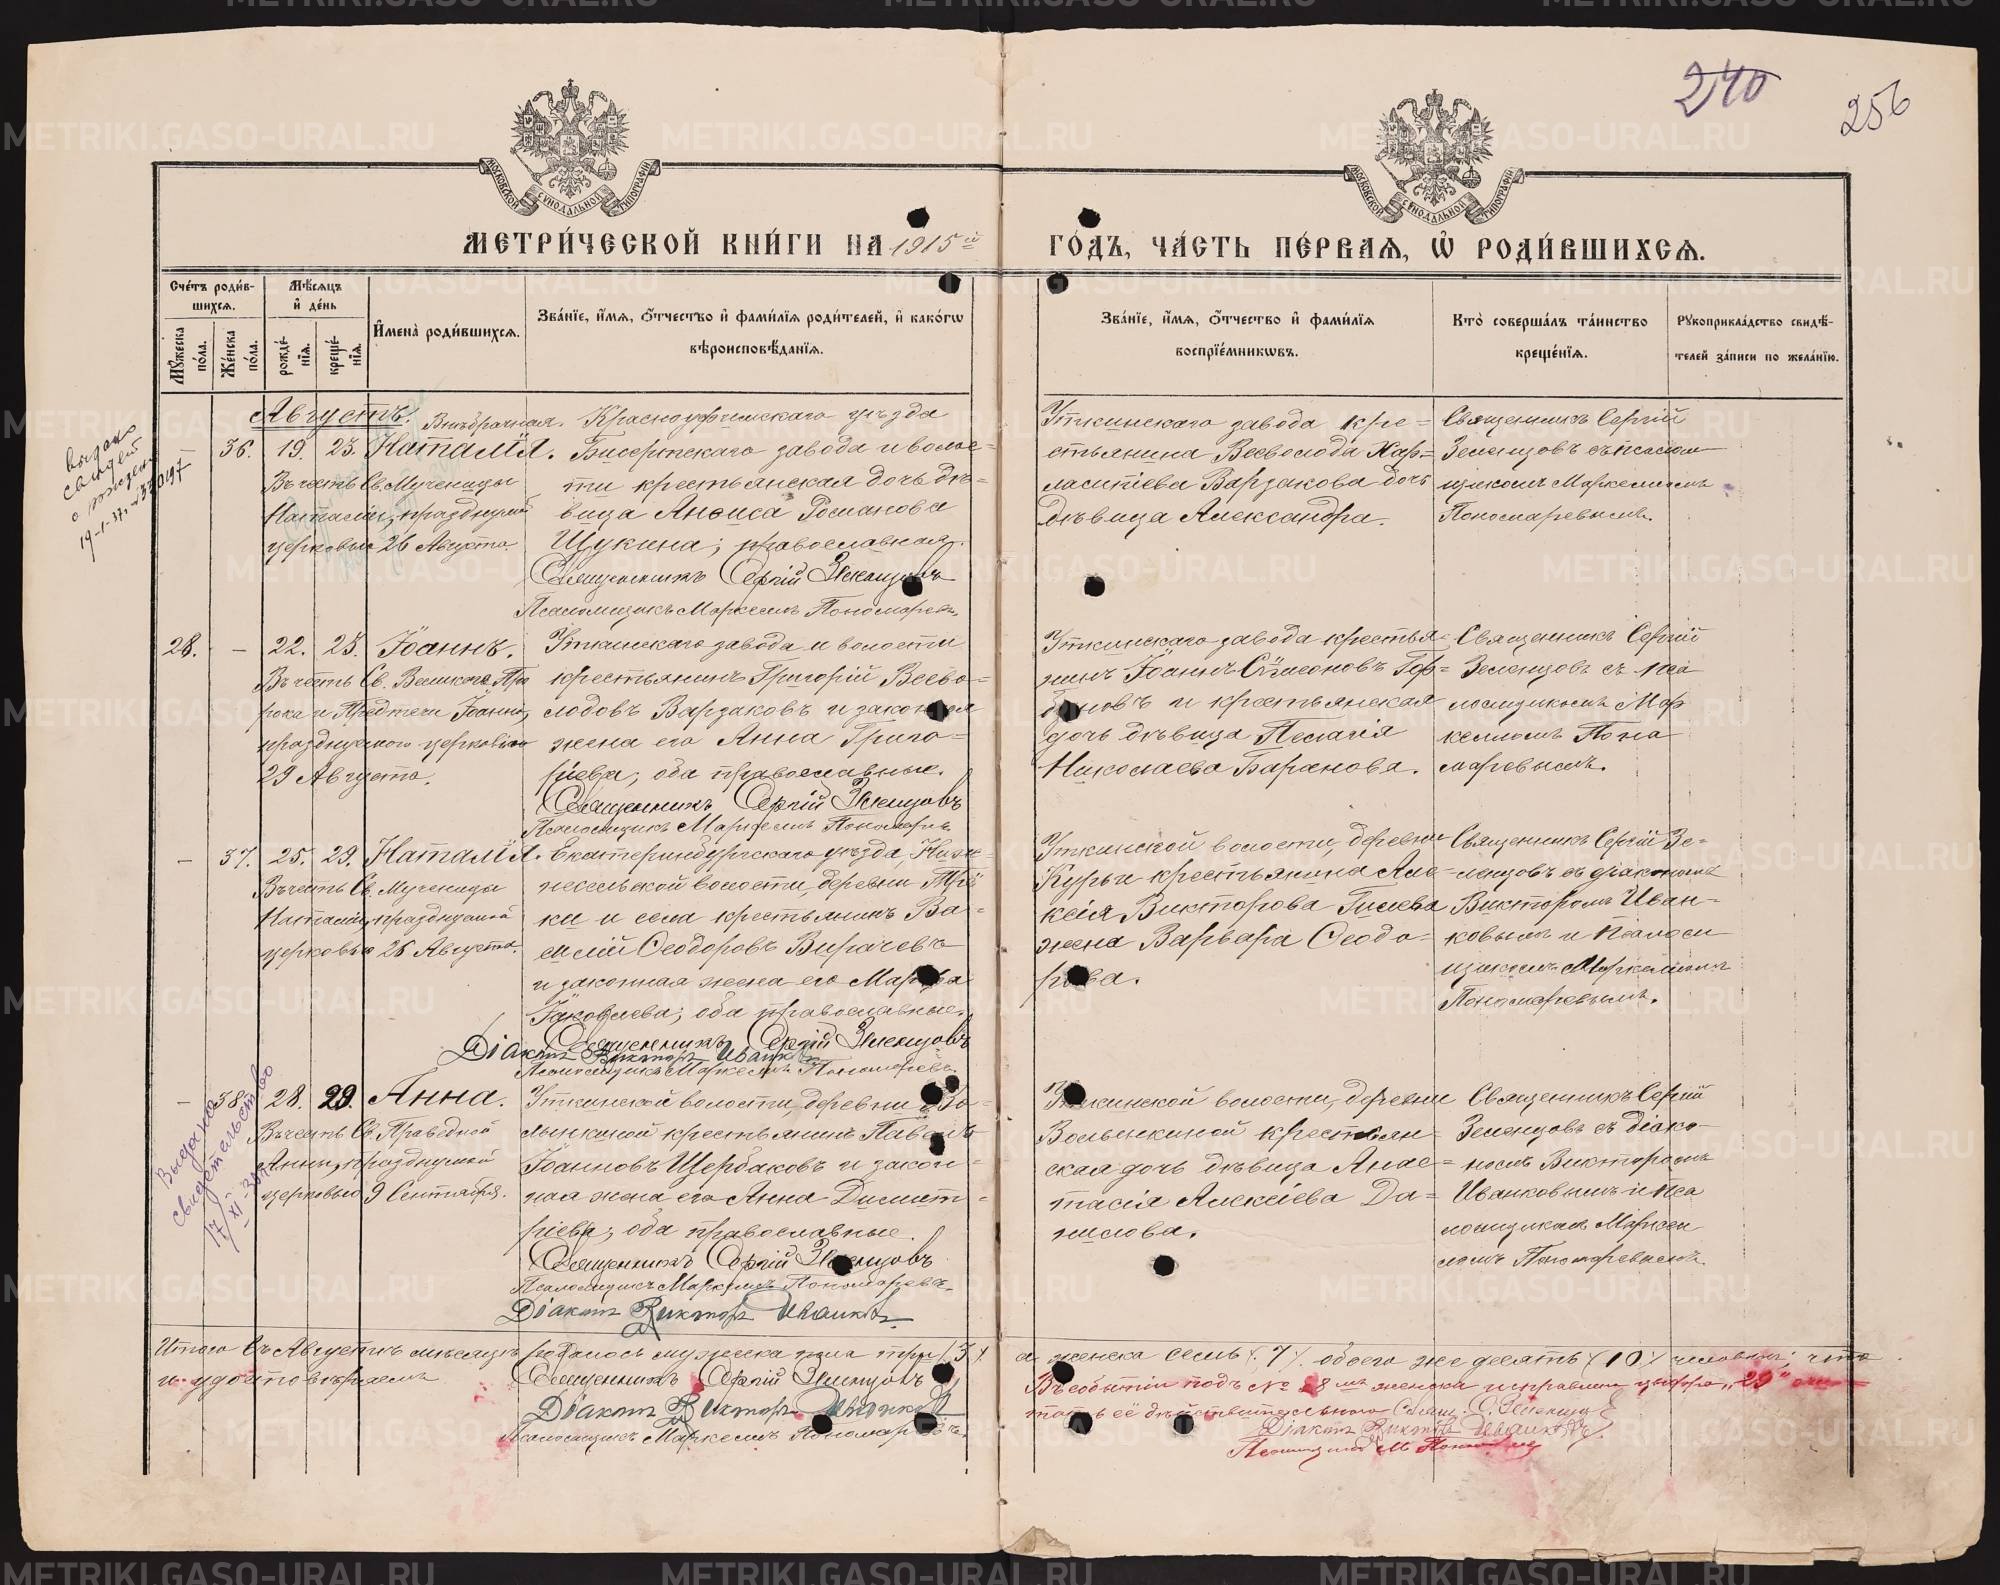 240
256
МЕТРИ́ЧЕСКОЙ КНИ́ГИ НА 1915й
ГО́ДЪ, ЧА́СТЬ ПЕ́РВАѦ, Ѽ РОДИ́ВШИХСѦ.
Сче́тъ роди́в-
шихсѧ.
Мꙋ́жеска по́ла.
Же́нска по́ла.
Мѣ́сѧцъ
и҆ де́нь
рожде́нїѧ.
креще́нїѧ.
И҆мена̀ роди́вшихсѧ.
Зва́нїе, и҆́мѧ, ѻ҆́тчество и҆ фами́лїѧ роди́телей, и҆ како́гѡ
вѣроисповѣ́данїѧ.
Зва́нїе, и҆́мѧ, ѻ҆́тчество и҆ фами́лїѧ
воспрїе́мникѡвъ.
Кто̀ соверша́лъ та́инство
креще́нїѧ.
Рꙋкоприкла́дство свидѣ́-
телей за́писи по жела́нїю.
Августъ.
Внѣбрачная.
– 36. 19. 23. Наталія.
Въ честь Св. Мученицы
Наталіи, празднуемой
церковью 26 Августа.
Красноуфимскаго уѣзда
Бисертскаго завода и волос-
ти крестьянская дочь дѣ-
вица Анѳиса Романова
Щукина; православная.
Священникъ Сергій Зеленцовъ
Псаломщикъ Маркеллъ Пономаревъ.
Уткинскаго завода кре=
стьянина Всеволода Хар=
лампіева Варзакова дочь
дѣвица Александра.
Священникъ Сергій
Зеленцовъ съ псалом
щикомъ Маркелломъ
Пономаревымъ.
28. – 22. 23. Іоаннъ.
Въ честь Св. Великаго Про
рока и Предтечи Іоанна,
празднуемаго церковію
29 Августа.
Уткинскаго завода и волости
крестьянинъ Григорій Всево-
лодовъ Варзаковъ и законная
жена его Анна Григо-
ріева; оба православные.
Священникъ Сергій Зеленцовъ
Псаломщикъ Маркеллъ Пономаревъ.
Уткинскаго завода крестья-
нинъ Іоаннъ Сѵмеоновъ Гор=
буновъ и крестьянская
дочь дѣвица Пелагія
Николаева Баранова.
Священникъ Сергій
Зеленцовъ съ пса
ломщикомъ Мар
келломъ Поно
маревымъ.
– 37. 25. 29. Наталія.
Въ честь Св. Мученицы
Наталіи, празднуемой
церковью 26 Августа.
Екатеринбургскаго уѣзда, Ниж-
несельской волости, деревни Трё
ки и села крестьянинъ Ва-
силій Ѳеодоровъ Вирачевъ
и законная жена его Марѳа
Іаковлева; оба православные.
Священникъ Сергій Зеленцовъ
Діаконъ Викторъ Иванковъ
Псаломщикъ Маркеллъ Пономаревъ.
Уткинской волости, деревни
Курьи крестьянина Але-
ксія Викторова Гилева
жена Варвара Ѳеодо-
рова.
Священникъ Сергій Зе-
ленцовъ съ діакономъ
Викторомъ Иван-
ковымъ и псалом
щикомъ Маркелломъ
Пономаревымъ.
– 38. 28. 29. Анна.
Въ честь Св. Праведной
Анны, празднуемой
церковью 9 Сентября.
Уткинской волости, деревни Во-
лынкиной крестьянинъ Павелъ
Іоанновъ Щербаковъ и закон-
ная жена его Анна Димит-
ріева; оба православные.
Священникъ Сергій Зеленцовъ
Псаломщикъ Маркеллъ Пономаревъ.
Діаконъ Викторъ Иванковъ.
Уткинской волости, деревни
Волынкиной крестьян-
ская дочь дѣвица Анас=
тасія Алексіева Да=
нилова.
Священникъ Сергій
Зеленцовъ съ діако-
номъ Викторомъ
Иванковымъ и пса
ломщикомъ Маркел
ломъ Пономаревымъ.
Итого въ Августѣ мѣсяцѣ родилось мужеска пола три /3/, а женска семь /7/, обоего же десять /10/ человѣкъ; что
и удостовѣряемъ
Священникъ Сергій Зеленцовъ
Діаконъ Викторъ Иванковъ
Псаломщикъ Маркеллъ Пономаревъ.
Въ событіи подъ № 38мъ женска исправлена цыфра „29“ счи-
тать её дѣйствительною Свящ. С. Зеленцовъ
Діаконъ Викторъ Иванковъ.
Псаломщикъ М. Пономаревъ
Выдано
свидет
о рожден
19-I-37г.
Выдано
свидетельство
17/XI-
METRIKI.GASO-URAL.RU